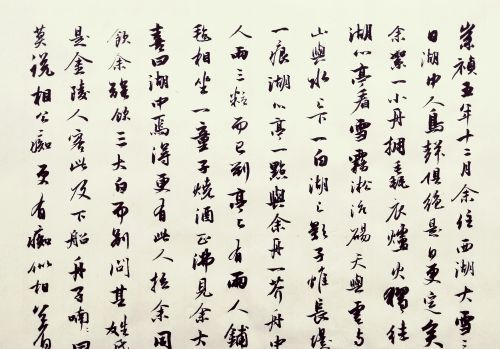 崇禎五年十二月余住西湖大雪三
日湖中人鳥聲俱絕是日更定矣
余挐一小舟擁毳衣爐火獨往
湖心亭看雪霧淞沆碭天與雲與
山與水上下一白湖上影子惟長堤
一痕湖心亭一點與余舟一芥舟中
人兩三粒而已到亭上有兩人鋪
氈相坐一童子燒酒正沸見余大
喜曰湖中焉得更有此人拉余同
飲余強飲三大白而別問其姓氏
是金陵人客此及下船舟子喃喃曰
莫說相公痴更有痴似相公者